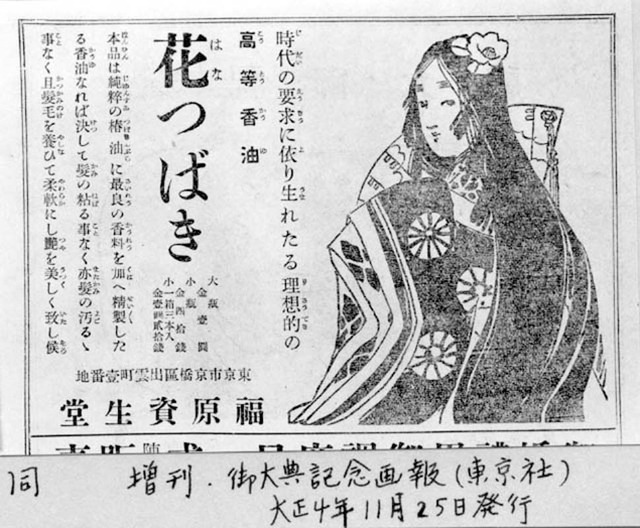 時代の要求に依り生れたる理想的の
高等香油
花つばき
本品は純粋の椿油に最良の香料を加へ精製した
る香油なれば決して髮の粘る事なく亦髮の汚るゝ
事なく且髮毛を養ひて柔軟にし艶を美しく致し候
大瓶 金壹圓
小瓶 金四拾錢
小一箱三本入 金壹圓貳拾錢
地番壹町雲出區橋京市京東
堂生資原福
同 増刊・御大典記念画報(東京社)
大正4年11月25日発行